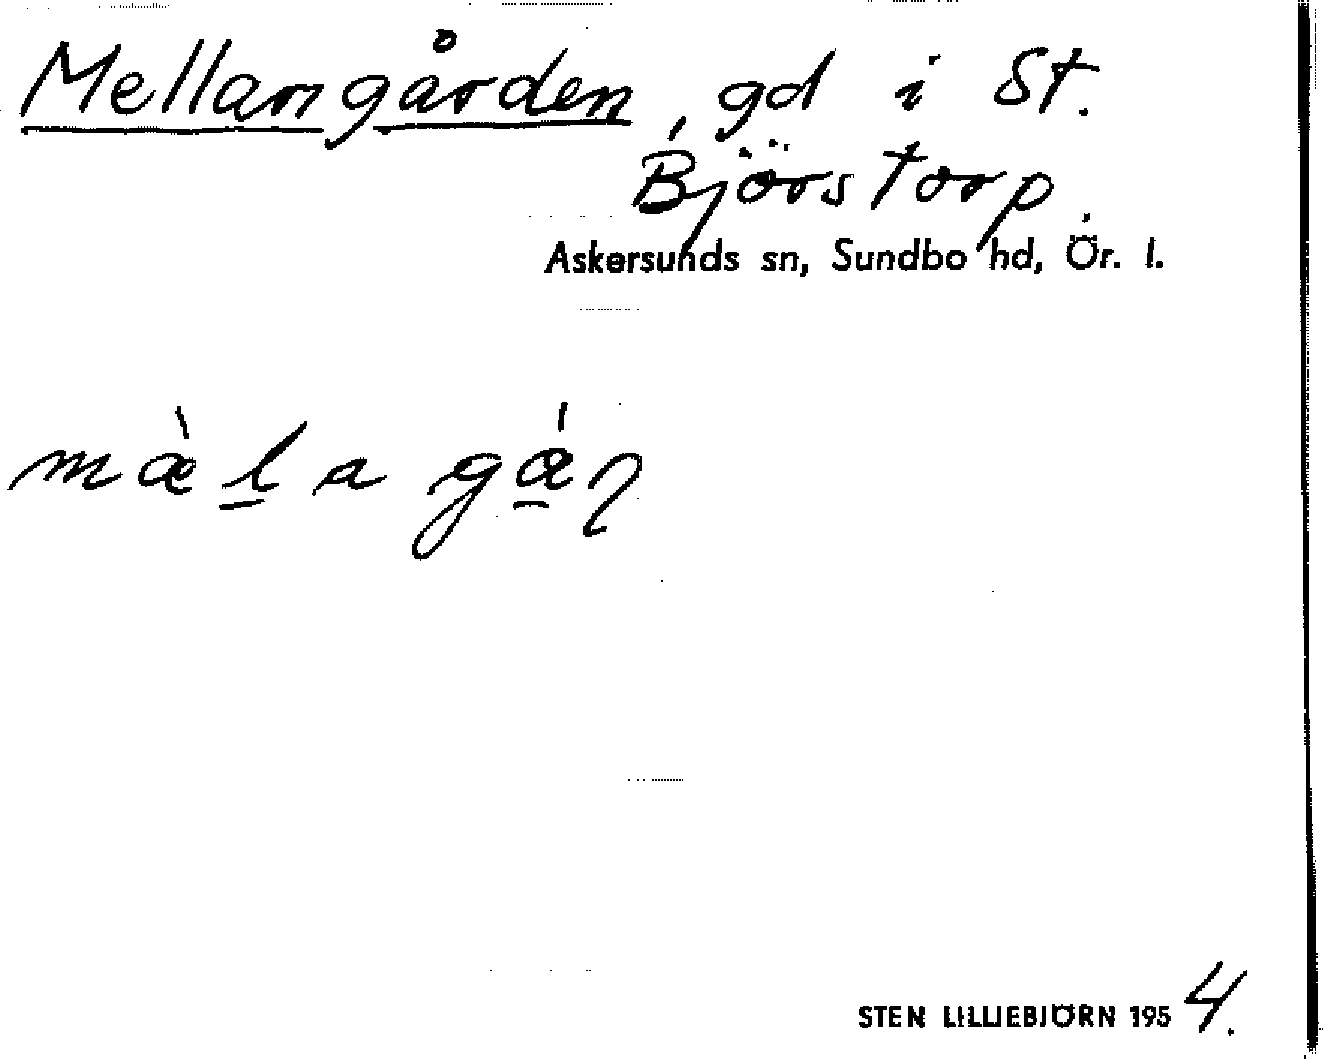 Mellangården, gd i St.
Björstorp.
Askersunds sn, Sundbo hd, Ör. l.
mæ̀l̲a gǽ̲ɳ
STEN LILLIEBJÖRN 1954.